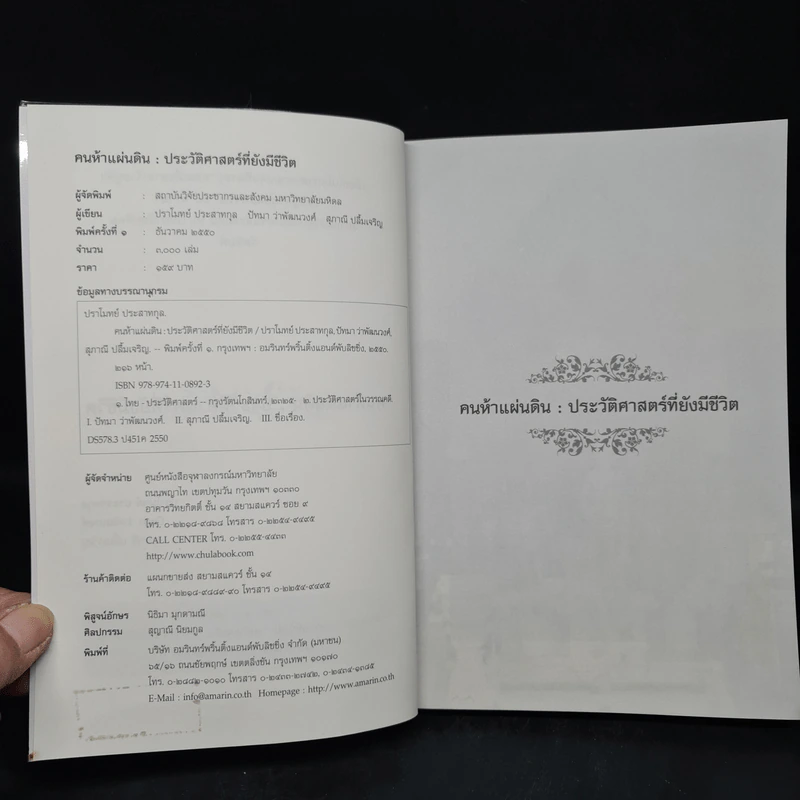 คนห้าแผ่นดิน : ประวัติศาสตร์ที่ยังมีชีวิต
ผู้จัดพิมพ์ : สถาบันวิจัยประชากรและสังคม มหาวิทยาลัยมหิดล
ผู้เขียน : ปราโมทย์ ประสาทกุล ปัทมา ว่าพัฒนวงศ์ สุภาณี ปลื้มเจริญ
พิมพ์ครั้งที่ ๑ : ธันวาคม ๒๕๕๐
จำนวน : ๓,๐๐๐ เล่ม
ราคา : ๑๕๙ บาท
ข้อมูลทางบรรณานุกรม
ปราโมทย์ ประสาทกุล.
คนห้าแผ่นดิน : ประวัติศาสตร์ที่ยังมีชีวิต / ปราโมทย์ ประสาทกุล, ปัทมา ว่าพัฒนวงศ์,
สุภาณี ปลื้มเจริญ. -- พิมพ์ครั้งที่ ๑. กรุงเทพฯ : อมรินทร์พริ้นติ้งแอนด์พับลิชชิ่ง, ๒๕๕๐.
๒๑๖ หน้า.
ISBN 978-974-11-0892-3
๑. ไทย - ประวัติศาสตร์ -- กรุงรัตนโกสินทร์, ๒๓๒๕- ๒. ประวัติศาสตร์ในวรรณคดี.
I. ปัทมา ว่าพัฒนวงศ์. II. สุภาณี ปลื้มเจริญ. III. ชื่อเรื่อง.
DS578.3 ป451ค 2550
ผู้จัดจำหน่าย ศูนย์หนังสือจุฬาลงกรณ์มหาวิทยาลัย
ถนนพญาไท เขตปทุมวัน กรุงเทพฯ ๑๐๓๓๐
อาคารวิทยกิตติ์ ชั้น ๑๔ สยามสแควร์ ซอย ๙
โทร. ๐-๒๒๑๘-๙๘๖๘ โทรสาร ๐-๒๒๕๔-๙๔๙๕
CALL CENTER โทร. ๐-๒๒๕๕-๔๔๓๓
http://www.chulabook.com
ร้านค้าติดต่อ แผนกขายส่ง สยามสแควร์ ชั้น ๑๔
โทร. ๐-๒๒๑๘-๙๘๘๙-๙๐ โทรสาร ๐-๒๒๕๔-๙๔๙๕
พิสูจน์อักษร นิธิมา มุกดามณี
ศิลปกรรม สุญาณี นิยมกูล
พิมพ์ที่ บริษัท อมรินทร์พริ้นติ้งแอนด์พับลิชชิ่ง จำกัด (มหาชน)
๖๕/๑๖ ถนนชัยพฤกษ์ เขตตลิ่งชัน กรุงเทพฯ ๑๐๑๗๐
โทร. ๐-๒๘๘๒-๑๐๑๐ โทรสาร ๐-๒๔๓๓-๒๗๔๒, ๐-๒๔๓๔-๑๓๘๕
E-Mail : info@amarin.co.th Homepage : http://www.amarin.co.th
คนห้าแผ่นดิน : ประวัติศาสตร์ที่ยังมีชีวิต